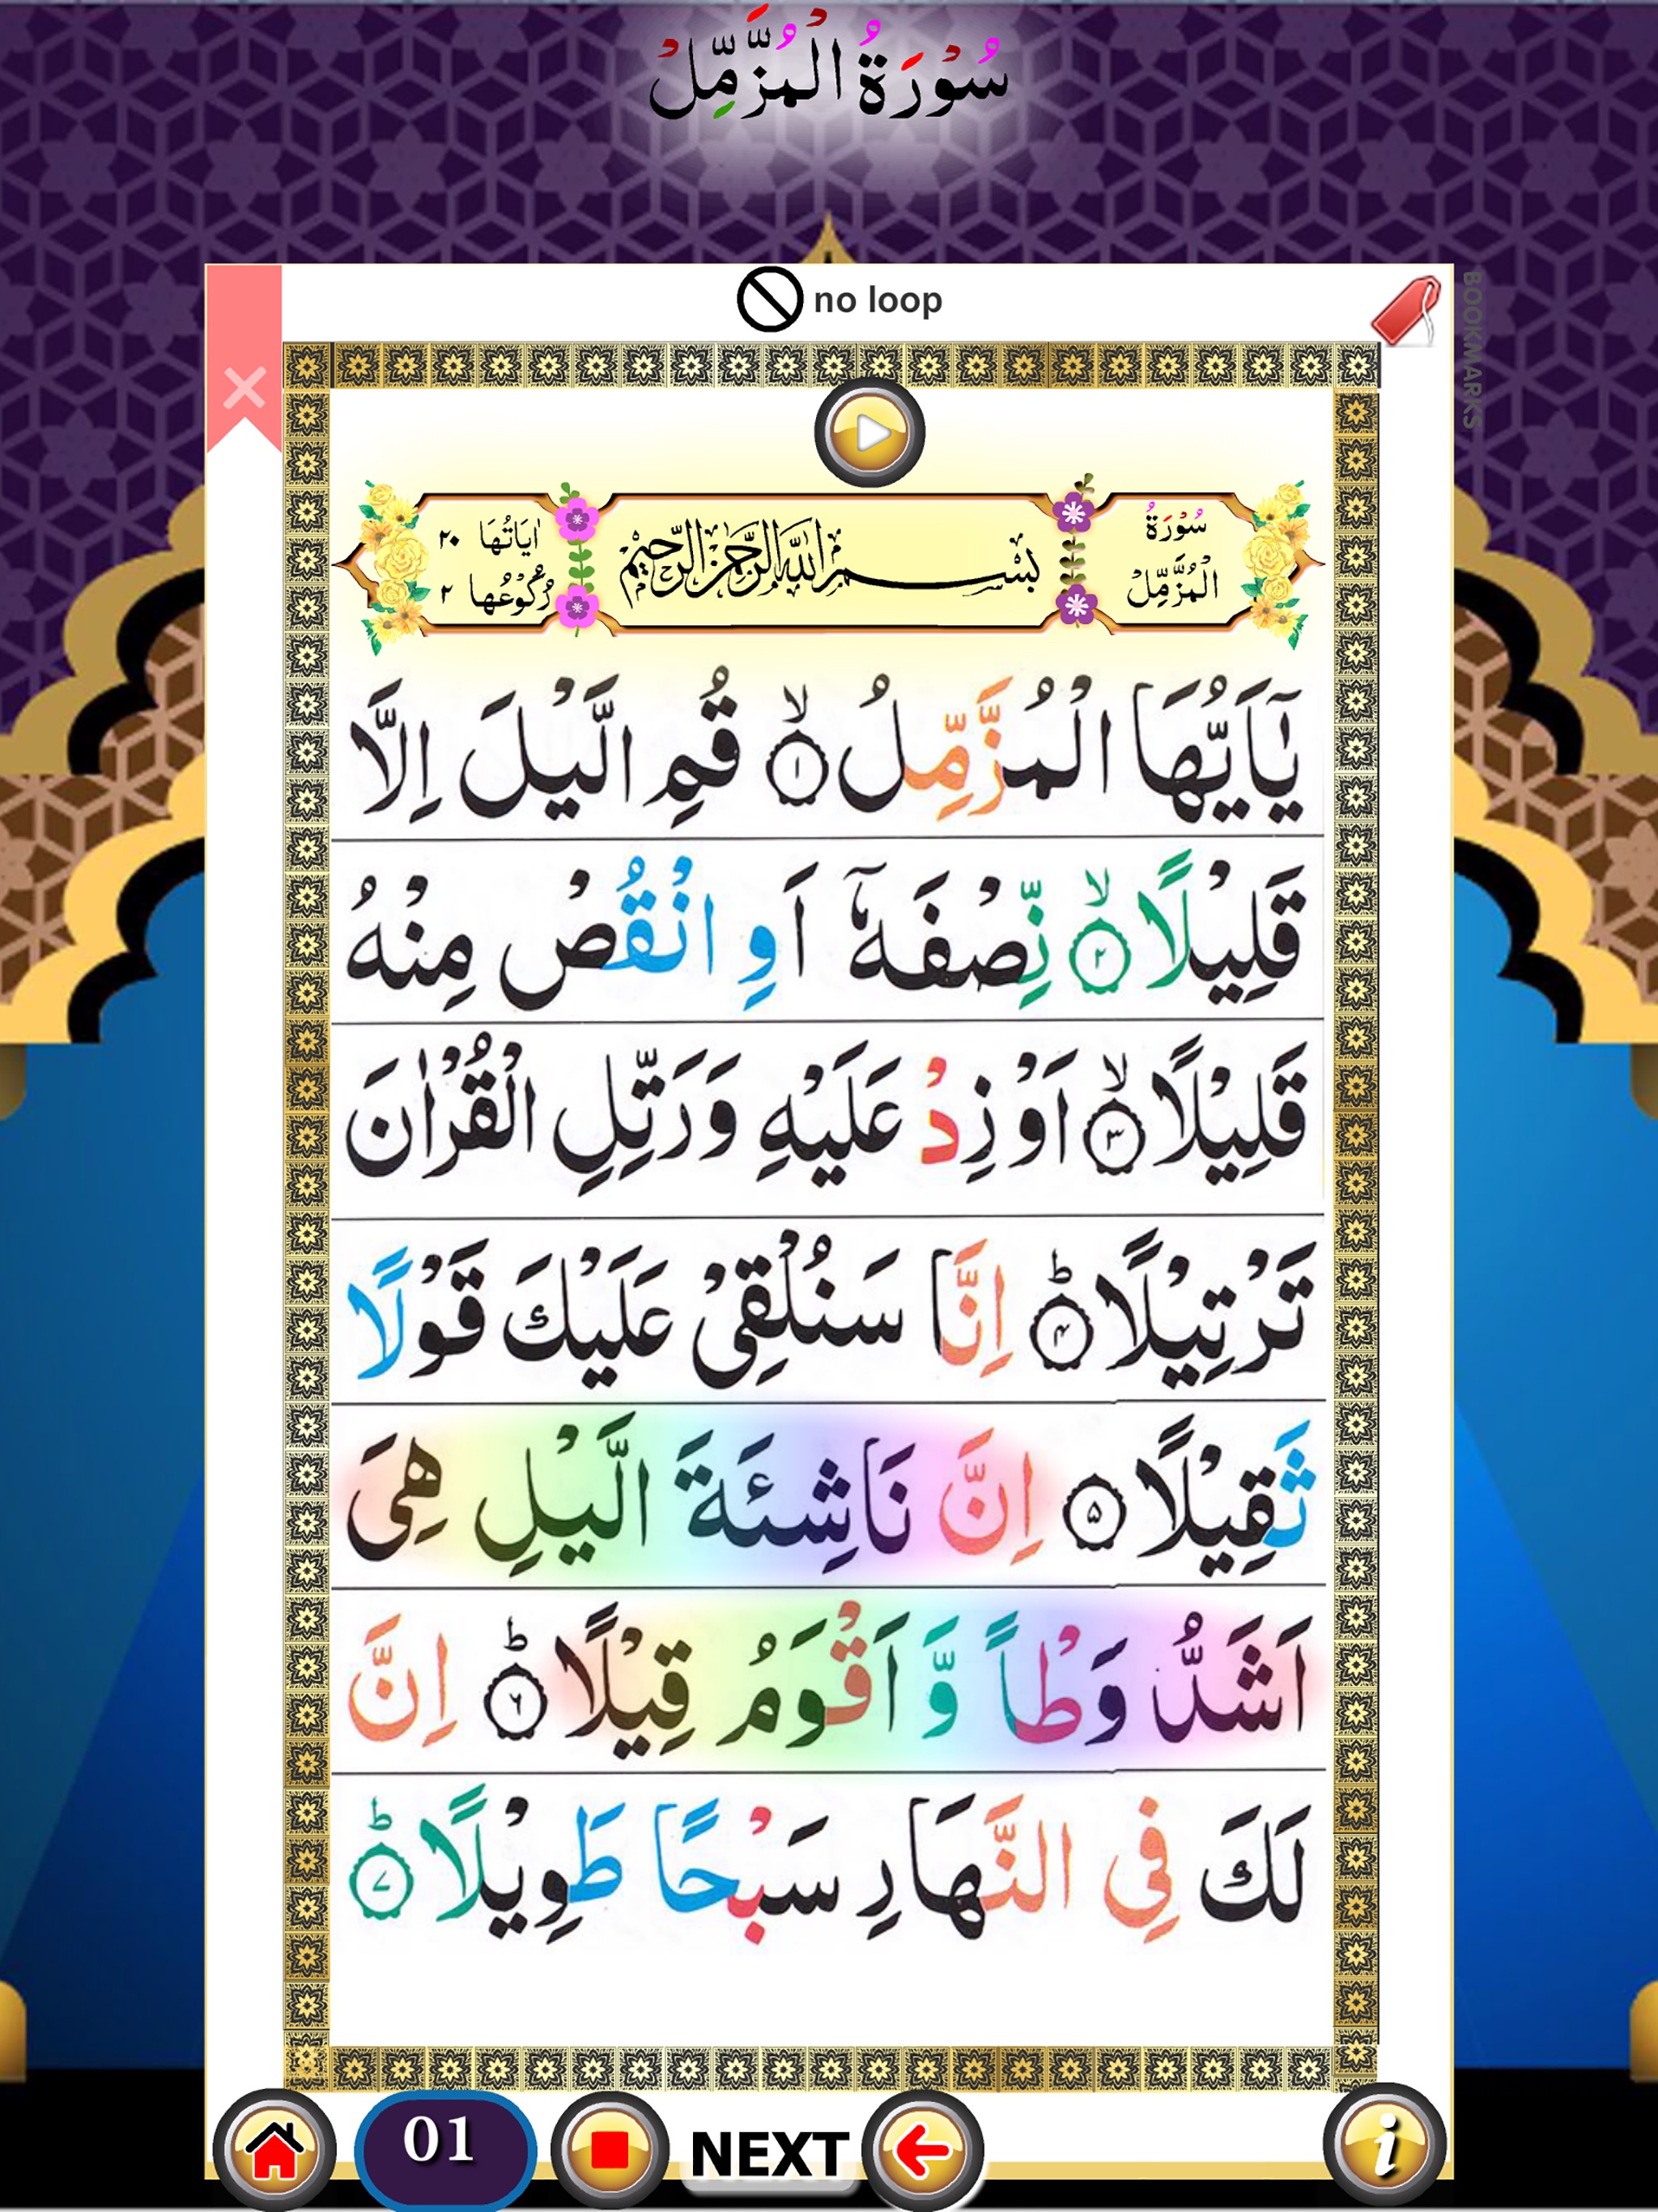 سُوْرَةُ الْمُزَّمِّلْ
no loop
BOOKMARKS
سُوْرَةُ
الْمُزَّمِّلْ
بِسْمِ اللّٰهِ الرَّحْمٰنِ الرَّحِيْمِ
اٰيَاتُهَا ٢٠
رُكُوْعُهَا ٢
يٰۤاَيُّهَا الْمُزَّمِّلُ ۙ‏﴿۱﴾ قُمِ الَّيْلَ اِلَّا
قَلِيْلًا ۙ‏﴿۲﴾ نِّصْفَهٗۤ اَوِ انْقُصْ مِنْهُ
قَلِيْلًا ۙ‏﴿۳﴾ اَوْ زِدْ عَلَيْهِ وَرَتِّلِ الْقُرْاٰنَ
تَرْتِيْلًا ؕ‏﴿۴﴾ اِنَّا سَنُلْقِىْ عَلَيْكَ قَوْلًا
ثَقِيْلًا ‏﴿۵﴾ اِنَّ نَاشِئَةَ الَّيْلِ هِىَ
اَشَدُّ وَطْاً وَّاَقْوَمُ قِيْلًا ؕ‏﴿۶﴾ اِنَّ
لَكَ فِى النَّهَارِ سَبْحًا طَوِيْلًا ؕ‏﴿۷﴾
01
NEXT
i